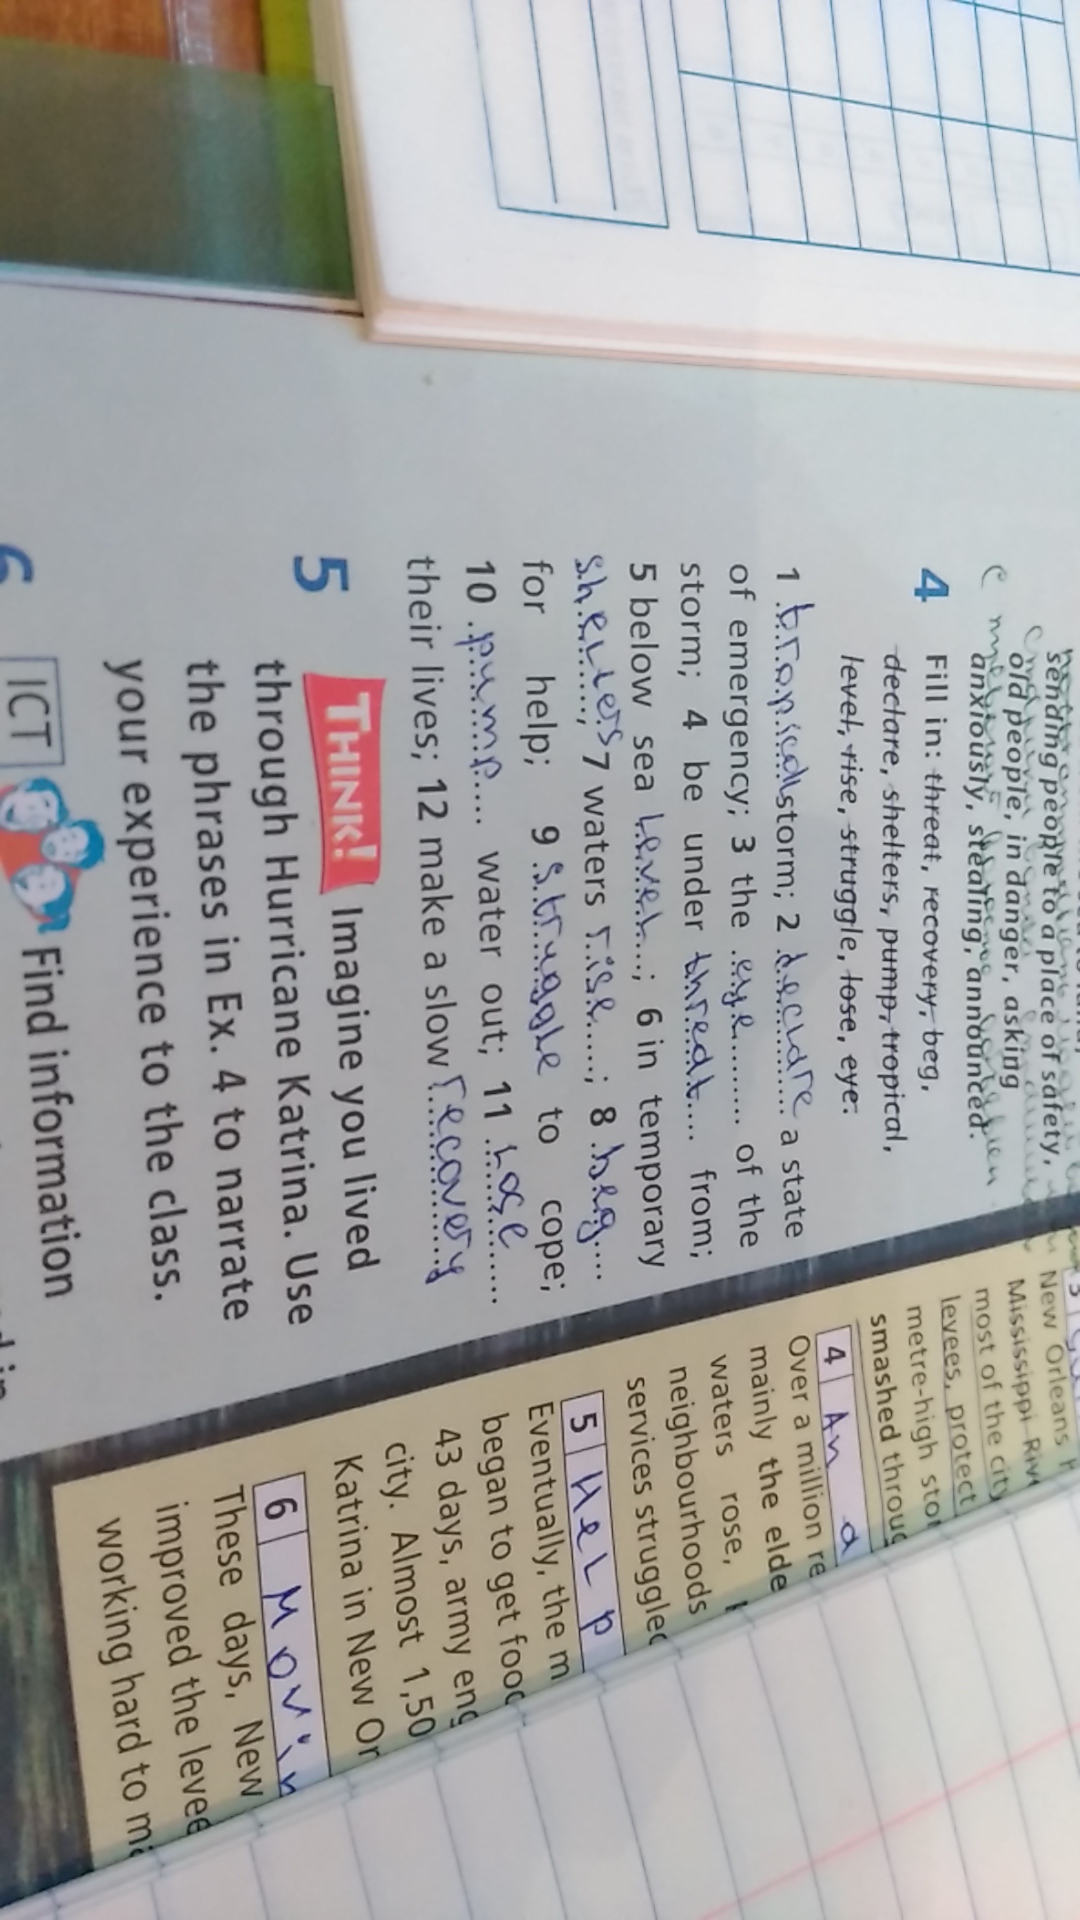 sending people to a place of safety,
old people, in danger, asking
anxiously, stealing, announced.
4 Fill in: threat, recovery, beg,
declare, shelters, pump, tropical,
level, rise, struggle, lose, eye.
1 tropical storm; 2 declare a state
of emergency; 3 the eye of the
storm; 4 be under thredt from;
5 below sea level; 6 in temporary
shelters; 7 waters rise; 8 beg
for help; 9 struggle to cope;
10 pump water out; 11 lose
their lives; 12 make a slow recovery
5 THINK! Imagine you lived
through Hurricane Katrina. Use
the phrases in Ex. 4 to narrate
your experience to the class.
6 ICT Find information
New Orleans
Mississippi Riv
most of the city
levees, protect
metre-high sto
smashed throug
4 An a
Over a million re
mainly the elde
waters rose,
neighbourhoods
services struggle
5 Help
Eventually, the m
began to get food
43 days, army eng
city. Almost 1,50
Katrina in New Or
6 Movin
These days, New
improved the levee
working hard to ma